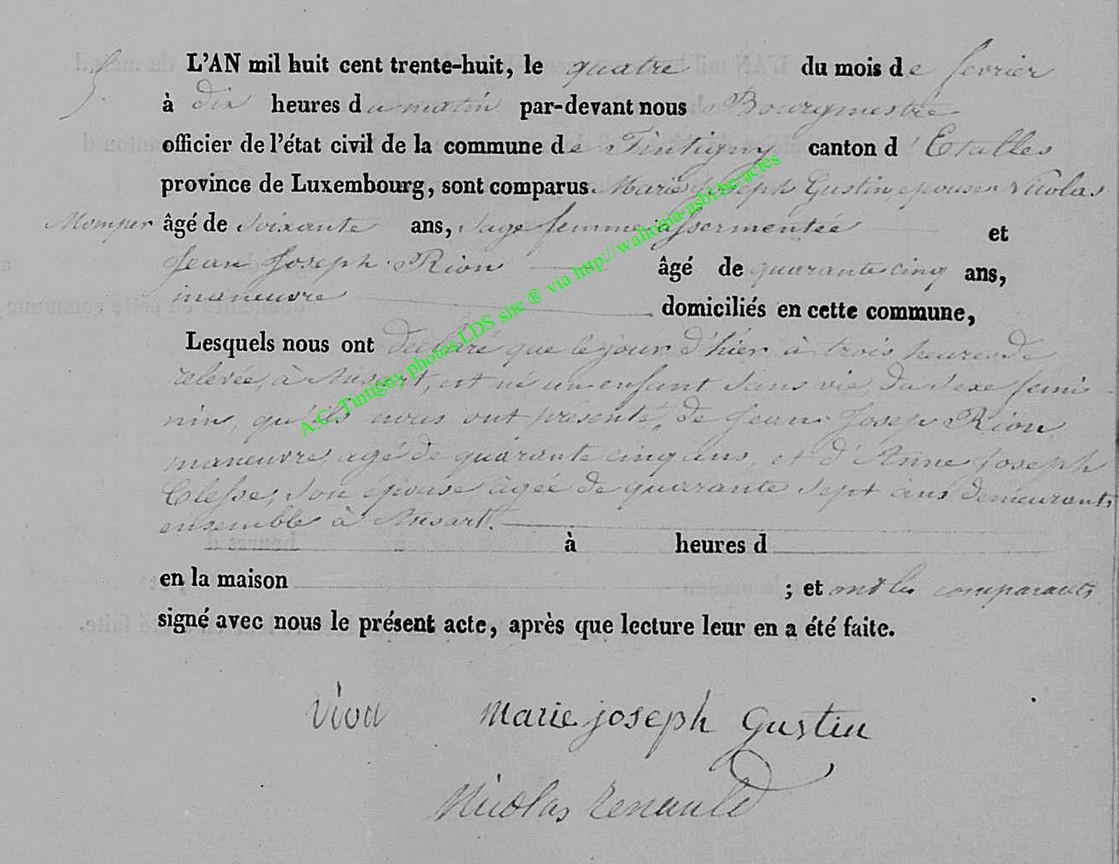 5.
L'AN mil huit cent trente-huit, le quatre du mois de fevrier
à dix heures du matin par-devant nous Bourgmestre
officier de l'état civil de la commune de Tintigny canton d'Etalles
province de Luxembourg, sont comparus Marie Joseph Gustin, epouse Nicolas
Momper âgé de Soixante ans, Sage femme assermentée et
Jean Joseph Rion âgé de quarante cinq ans,
maneuvre domiciliés en cette commune,
Lesquels nous ont declaré que le jour d'hier à trois heures de
relevée, à Ansart, est né un enfant Sans vie, du Sexe femi
nin, qu'ils nous ont présenté, de Jean Joseph Rion
maneuvre, agé de quarante cinq ans, et d'Anne Joseph
Clesse, Son epouse âgée de quarante Sept ans demeurants
ensemble à Ansart.
à heures d
en la maison ; et ont les comparants
signé avec nous le présent acte, après que lecture leur en a été faite.
Marie joseph Gustin
Nicolas Renauld
A.C. Tintigny photos LDS site ® via http://wallonia-asbl.be/actes